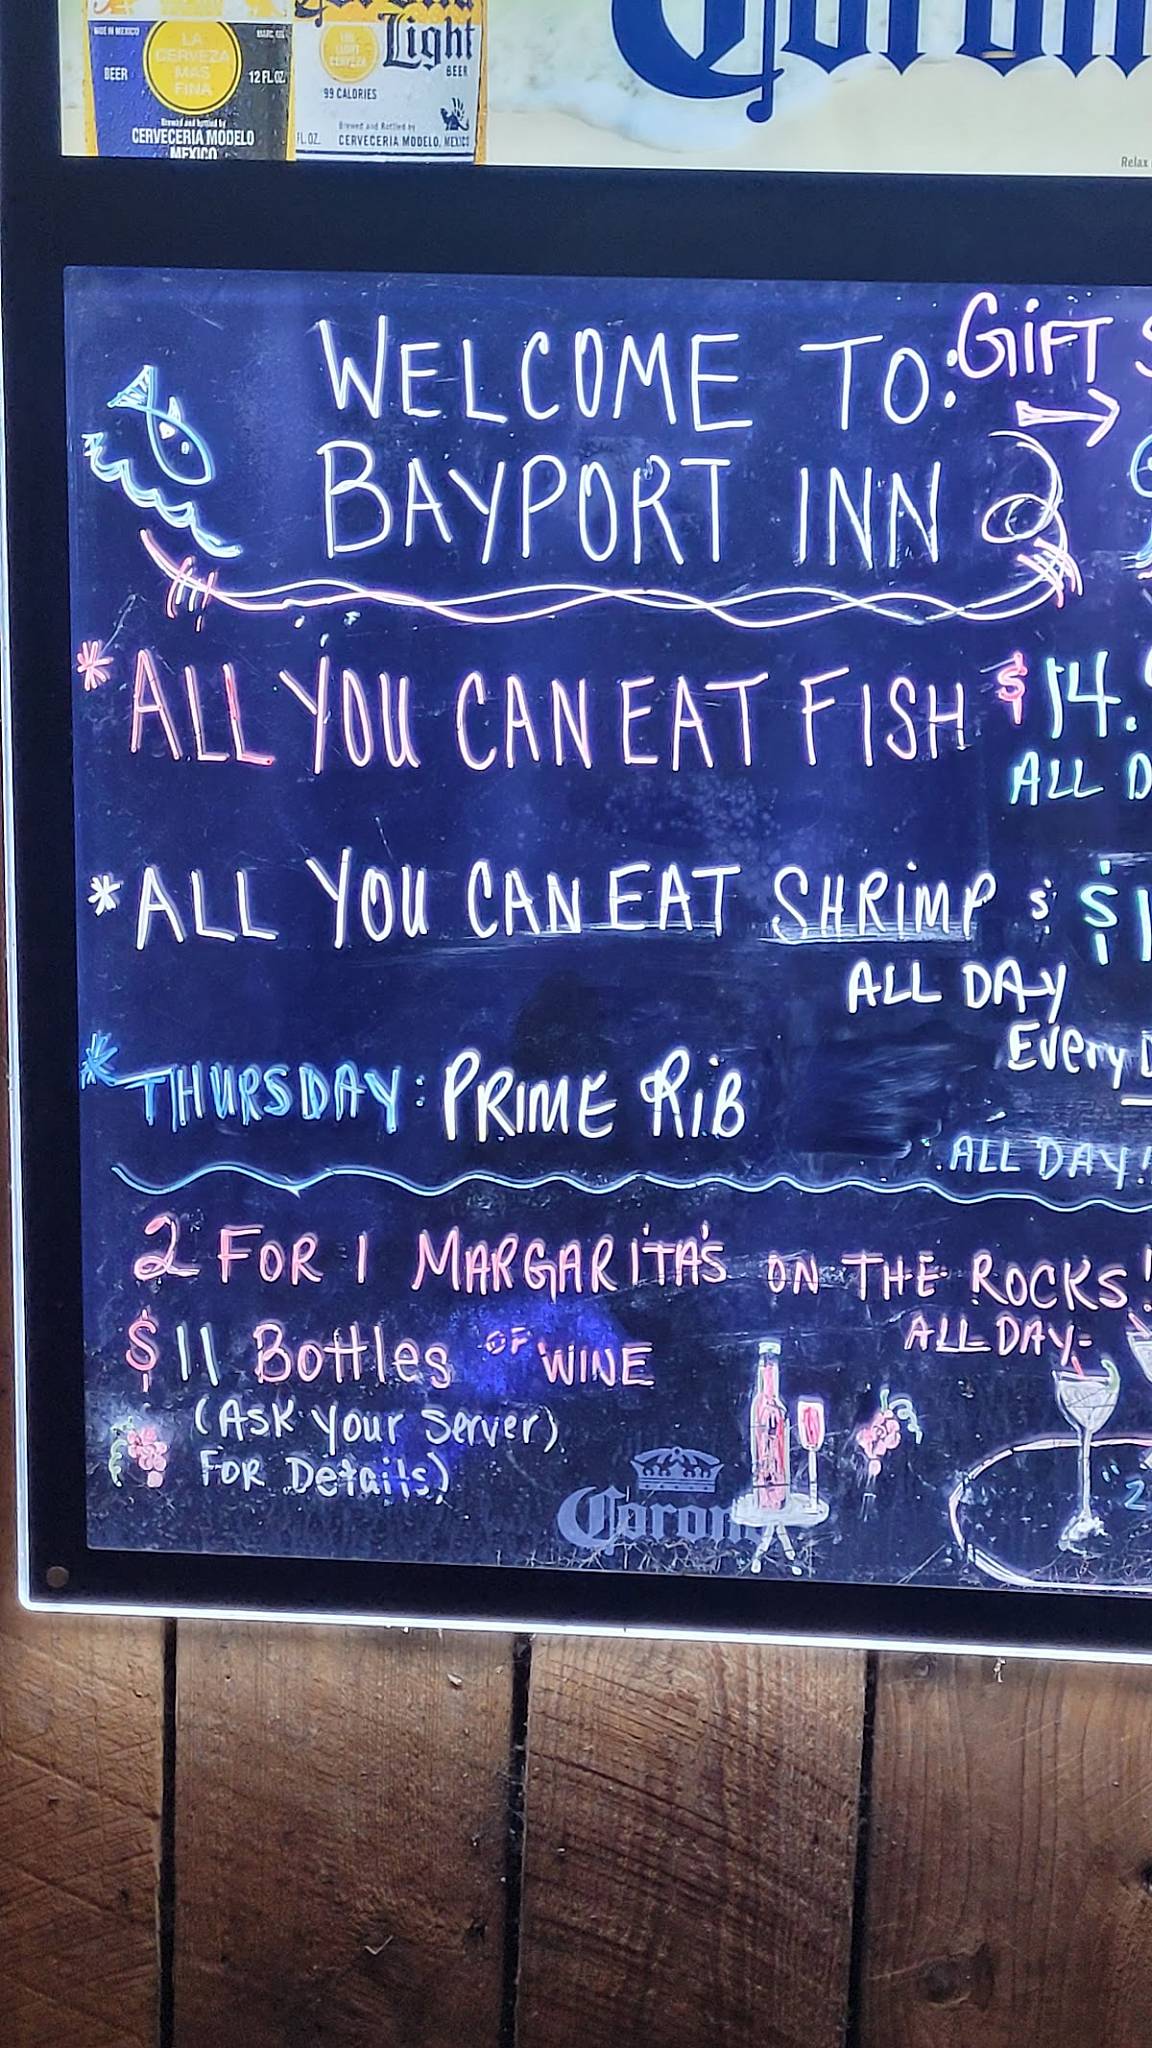 MADE IN MEXICO
LA
CERVEZA
MAS
FINA
BEER
12 FL.OZ.
Brewed and Bottled by
CERVECERIA MODELO
MEXICO
Corona
Light
BEER
99 CALORIES
Brewed and Bottled by
FL.OZ. CERVECERIA MODELO, MEXICO
Corona
Relax
WELCOME TO: GiFT S
BAYPORT INN
* ALL YOU CAN EAT FISH $14.
ALL D
* ALL YOU CAN EAT SHRiMP $ $1
ALL DAY
Every D
* THURSDAY: PRIME RiB
ALL DAY!
2 FOR 1 MARGARiTA'S ON THE ROCKS!
ALL DAY-
$11 Bottles OF WINE
(ASK Your Server)
FOR Details)
Corona
"2